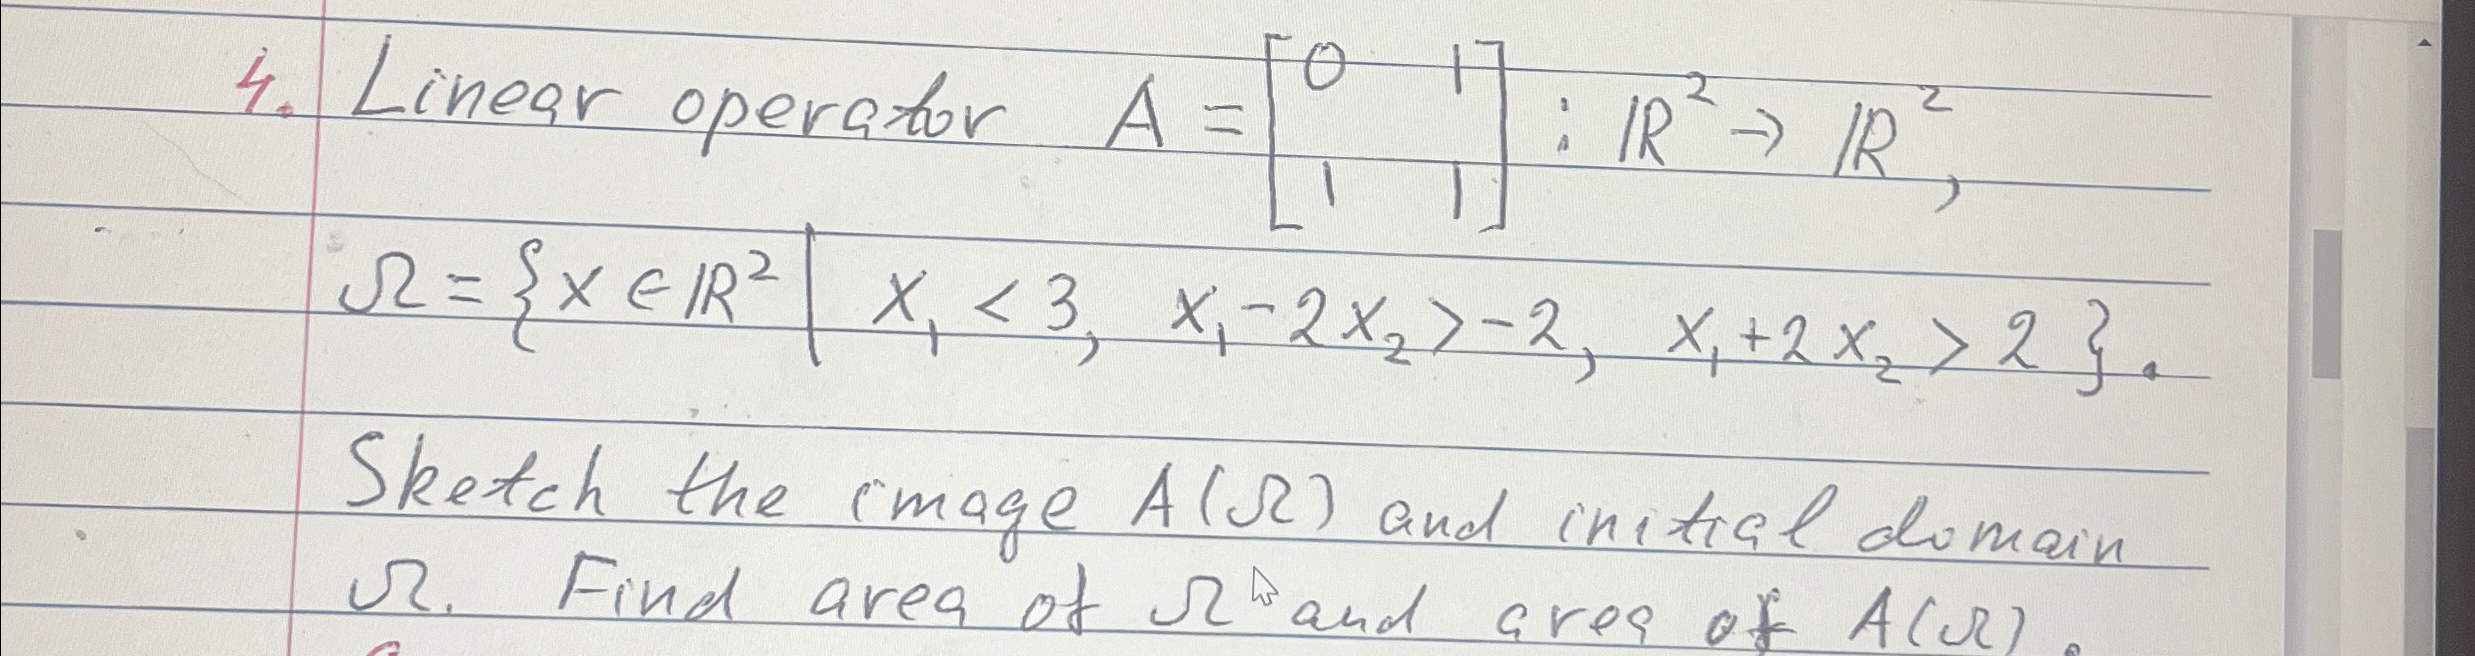 4. Linear operator A = [0 1; 1 1] : ℝ² → ℝ²,
Ω = {x ∈ ℝ² | x₁ < 3, x₁ - 2x₂ > -2, x₁ + 2x₂ > 2}.
Sketch the image A(Ω) and initial domain
Ω. Find area of Ω and area of A(Ω).